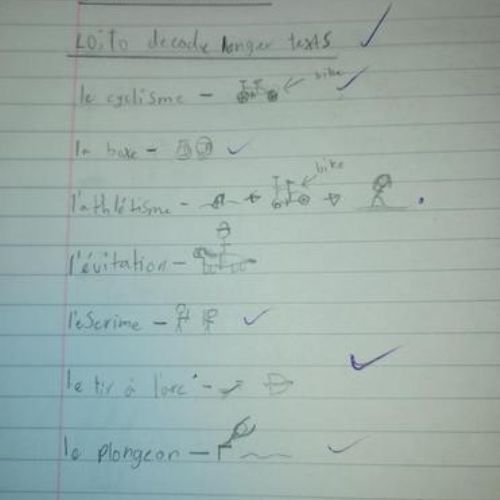 LOiTo decode longer texts
le cyclisme - bike
la boxe -
bike
l'athlétisme -
l'évitation -
l'escrime -
le tir à l'arc -
le plongeon -